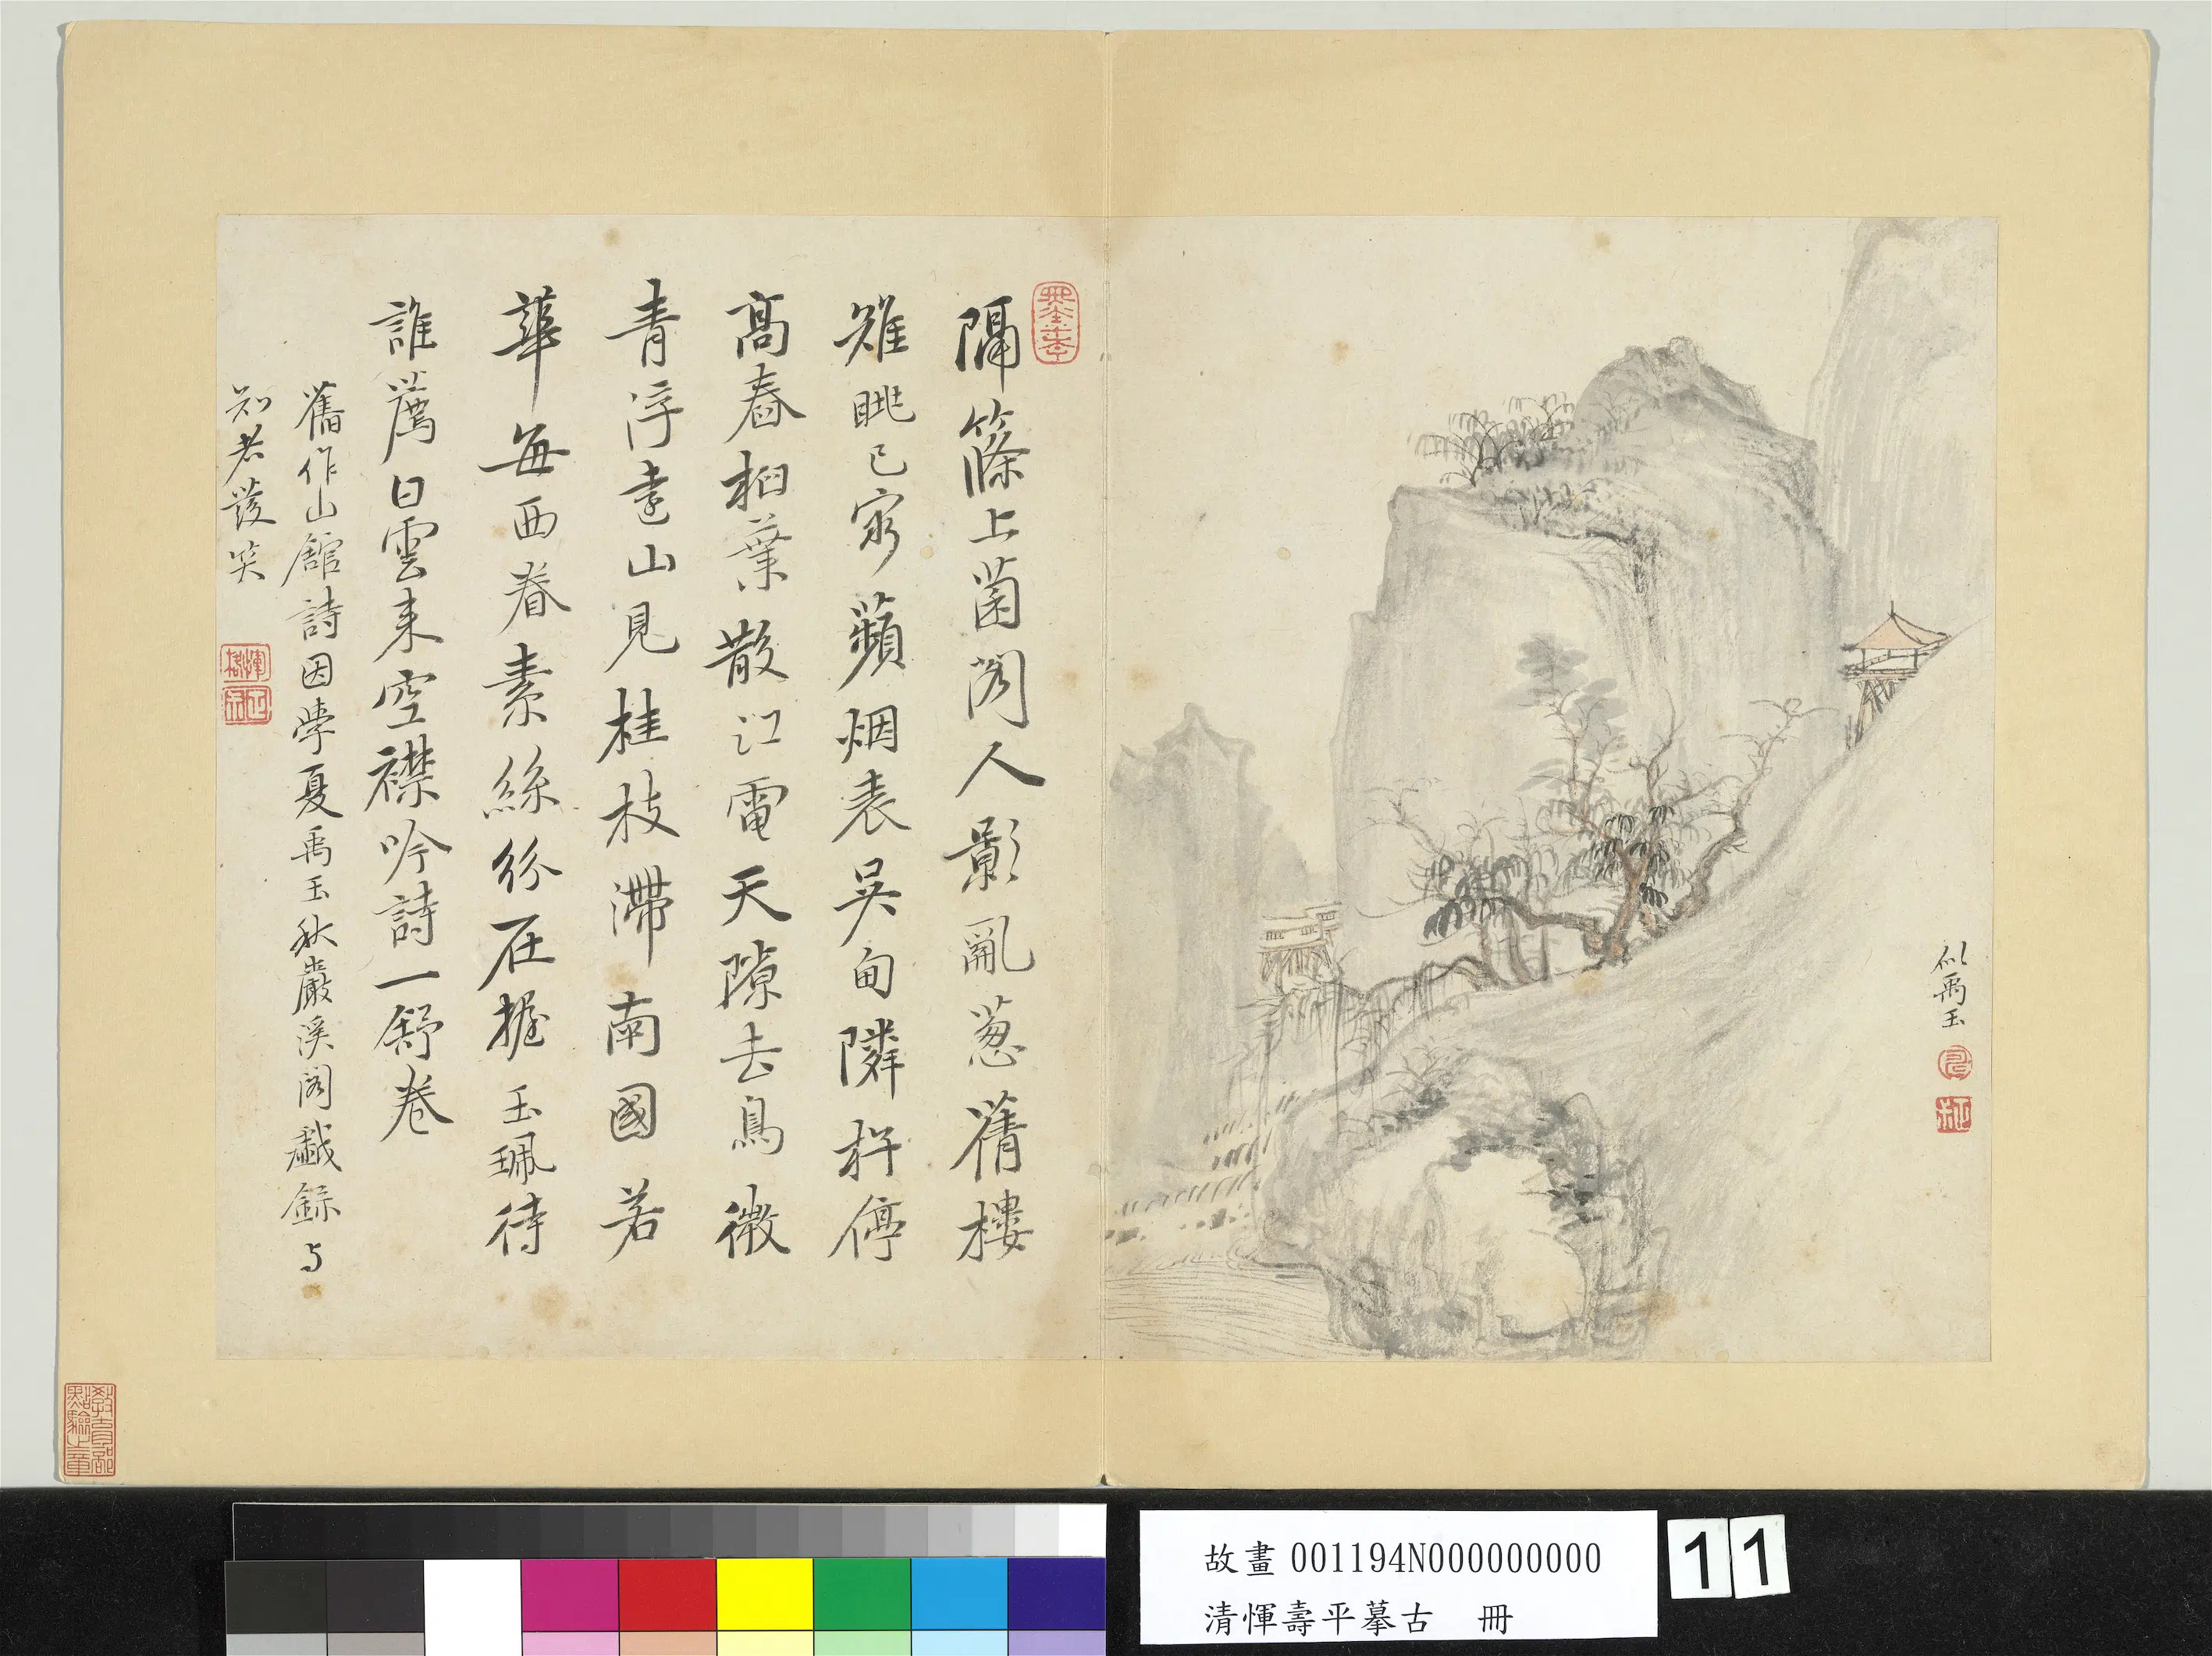 似禹玉
隔篠上菌閣人影亂葱蒨樓
雉眺已窮蘋烟表吳甸隣杵停
高舂桕葉散江電天隙去鳥微
青浮遠山見桂枝滯南國若
華每西眷素絲紛在握玉珮待
誰薦白雲来空襟吟詩一舒卷
舊作山館詩因學夏禹玉秋巖溪閣戲錄与
知者發笑
教育部點驗之章
故畫 001194N000000000
清惲壽平摹古 冊
11